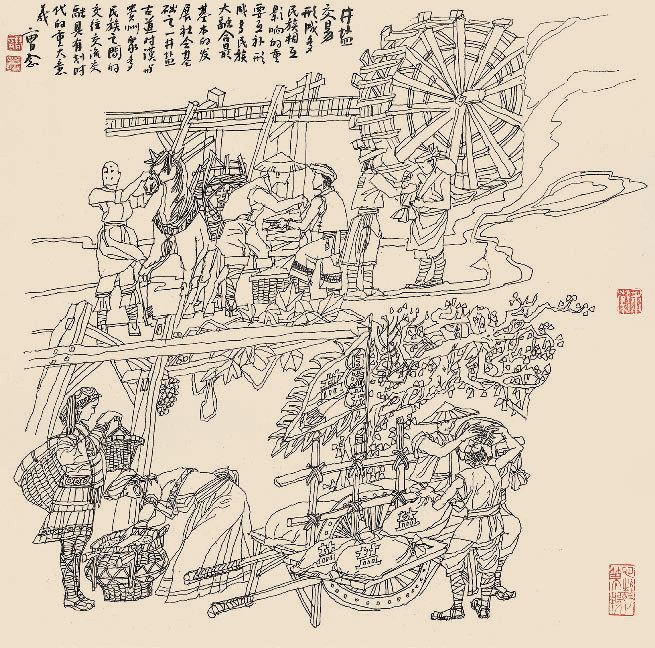 井盐
交易
形成多
民族相互
影响的重
要互补形
成多民族
大融合最
基本的发
展社会基
础之一井盐
古道对滇
贵州众多
民族之间的
交往交流交
融具有划时
代的重大意
义